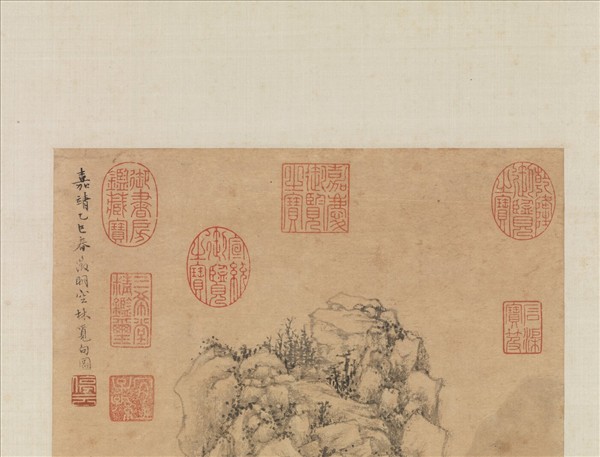 乾隆御覽之寶
石渠寶笈
嘉慶御覽之寶
宣統御覽之寶
御書房鑑藏寶
三希堂精鑑璽
嘉靖乙巳春徵明空林覓句圖